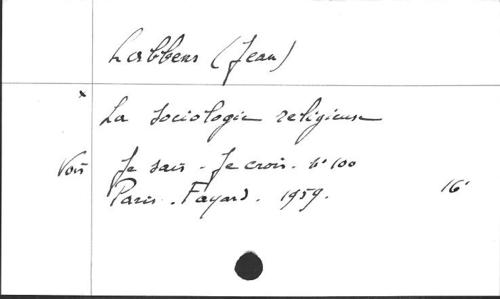 Labbens (Jean)
x
La sociologie religieuse
Voir Je sais - Je crois. N° 100
Paris. Fayard. 1959. 16°